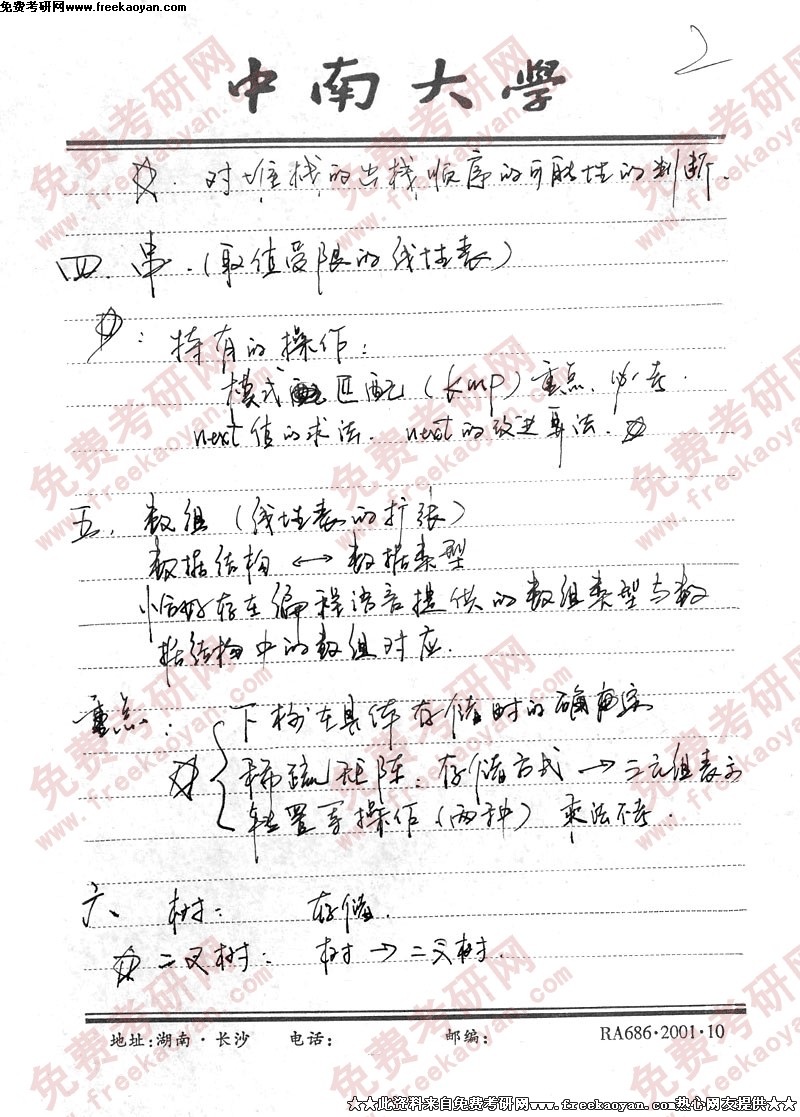 免费考研网www.freekaoyan.com
2
中南大學
☆. 对堆栈的出栈顺序的可能性的判断.
四. 串.(取值受限的线性表)
☆: 特有的操作:
模式匹配(kmp)重点, 必考.
next值的求法. next的改进算法. ☆
五. 数组(线性表的扩张)
数据结构 ↔ 数据类型
恰好存在编程语言提供的数组类型与数
据结构中的数组对应.
重点: 下标在具体存储时的确定
☆ 稀疏矩阵: 存储方式 → 三元组表示
转置等操作(两种) 乘法不考.
六、树: 存储.
☆ 二叉树: 树 → 二叉树.
地址:湖南·长沙 电话: 邮编: RA686·2001·10
★★此资料来自免费考研网www.freekaoyan.com热心网友提供★★